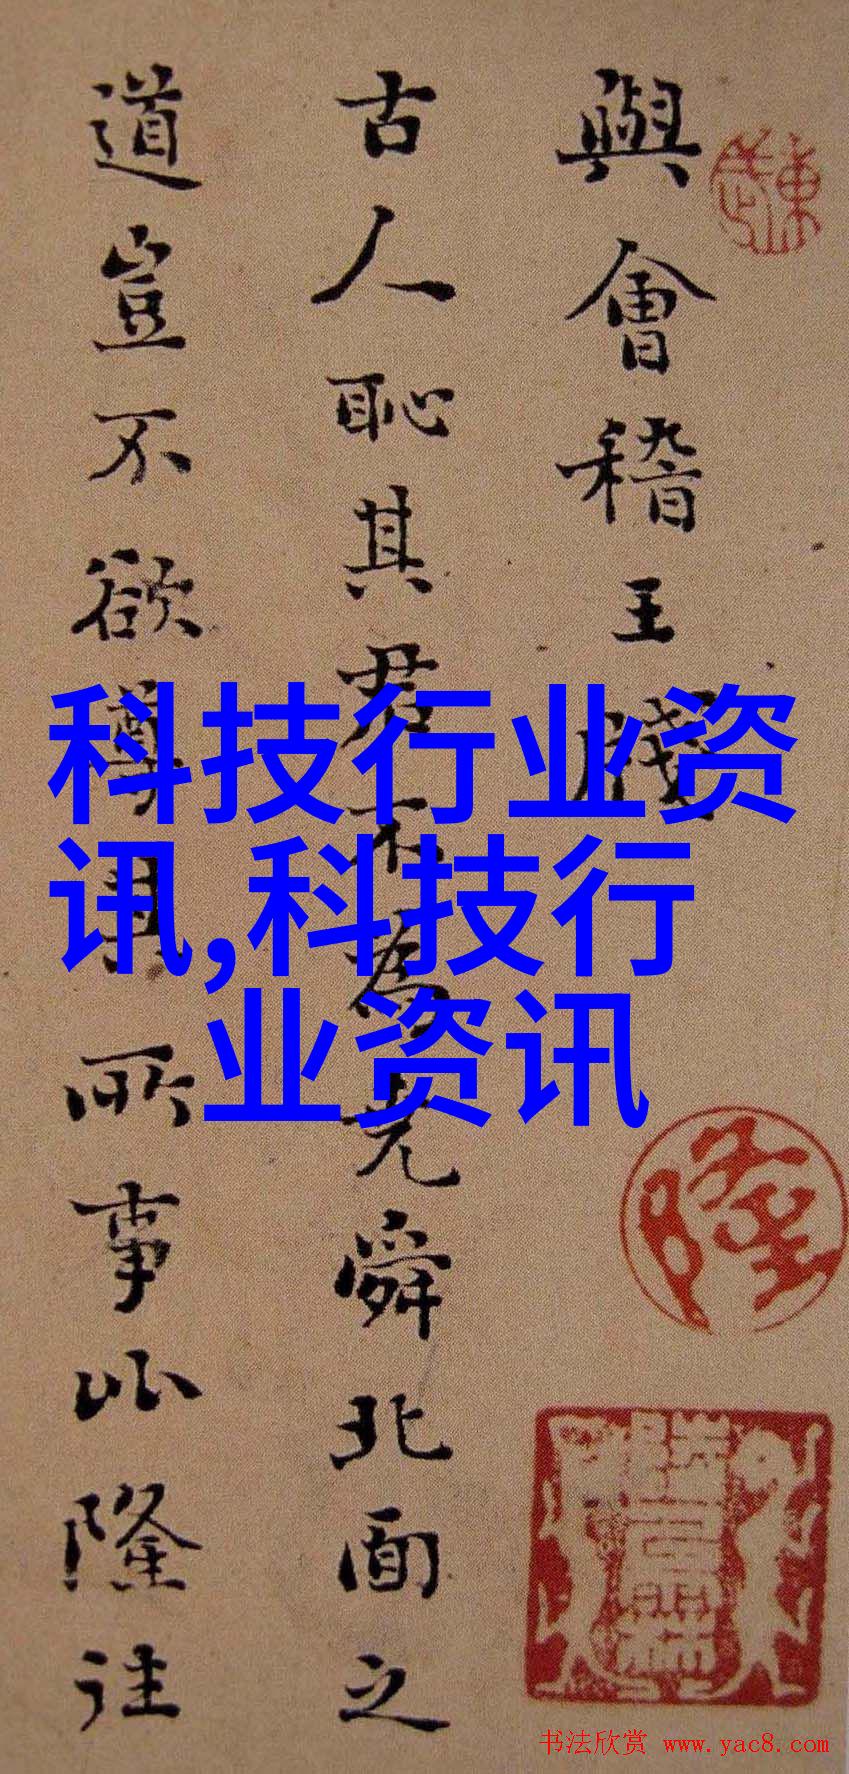 與會稽王牋
古人恥其君不為堯舜北面之
道豈不欲尊其所事比隆往
科技行业资
讯,科技行
业资讯
隆
书法欣赏 www.yac8.com